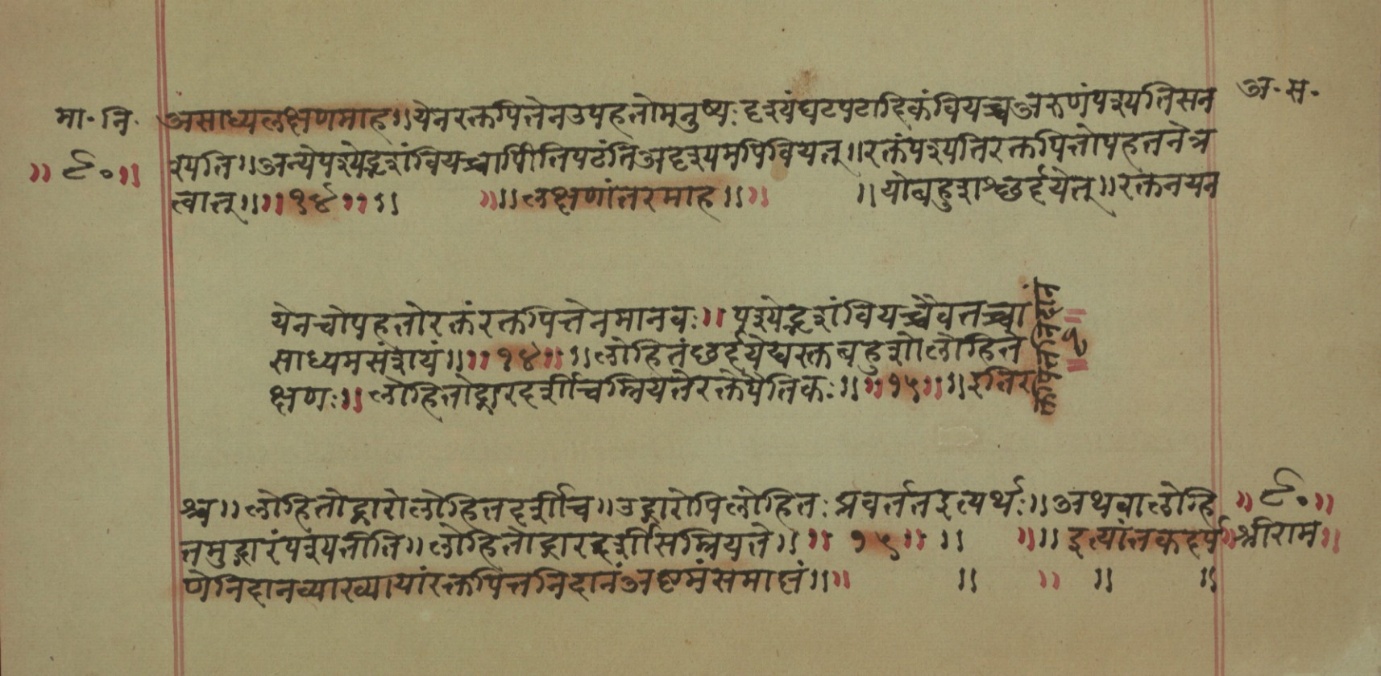 मा॰ नि॰
॥ ९० ॥
अ॰ स॰
असाध्यलक्षणमाह ॥ येनरक्तपित्तेनउपहतोमनुष्यः दृश्यंघटपटादिकंवियच्चअरुणंपश्यतिसन
श्यति ॥ अन्येपश्येद्दृशंवियच्चापीतिपठंतिअदृश्यमपिवियत् ॥ रक्तंपश्यतिरक्तपित्तोपहतनेत्र
त्वात् ॥ ॥ १४ ॥ ॥ ॥ ॥ लक्षणांतरमाह ॥ ॥ ॥ योबहुशश्छर्दयेत् ॥ रक्तनयन
येनचोपहतोरक्तंरक्तपित्तेनमानवः ॥ पश्येद्दृशंवियच्चैवतच्चा
साध्यमसंशयं ॥ ॥ १४ ॥ ॥ लोहितंछर्दयेद्यस्तबहुशोलोहिते
क्षणः ॥ लोहितोद्गारदर्शीचम्रियतेरक्तपैतिकः ॥ ॥ १५ ॥ ॥ इतिर
श्च ॥ लोहितोद्गारोलोहितदर्शीच ॥ उद्गारोपिलोहितः प्रवर्ततइत्यर्थः ॥ अथवालोहि
तमुद्गारंपश्यतीति ॥ लोहितोद्गारदर्शीसम्रियते ॥ ॥ १५ ॥ ॥ ॥ ॥ इत्यांतकदर्प
णेनिदानव्याख्यायांरक्तपित्तनिदानंअष्टमंसमाप्तं ॥ ॥ ॥ ॥ ॥ ॥
॥ ९० ॥
॥ श्रीराम ॥